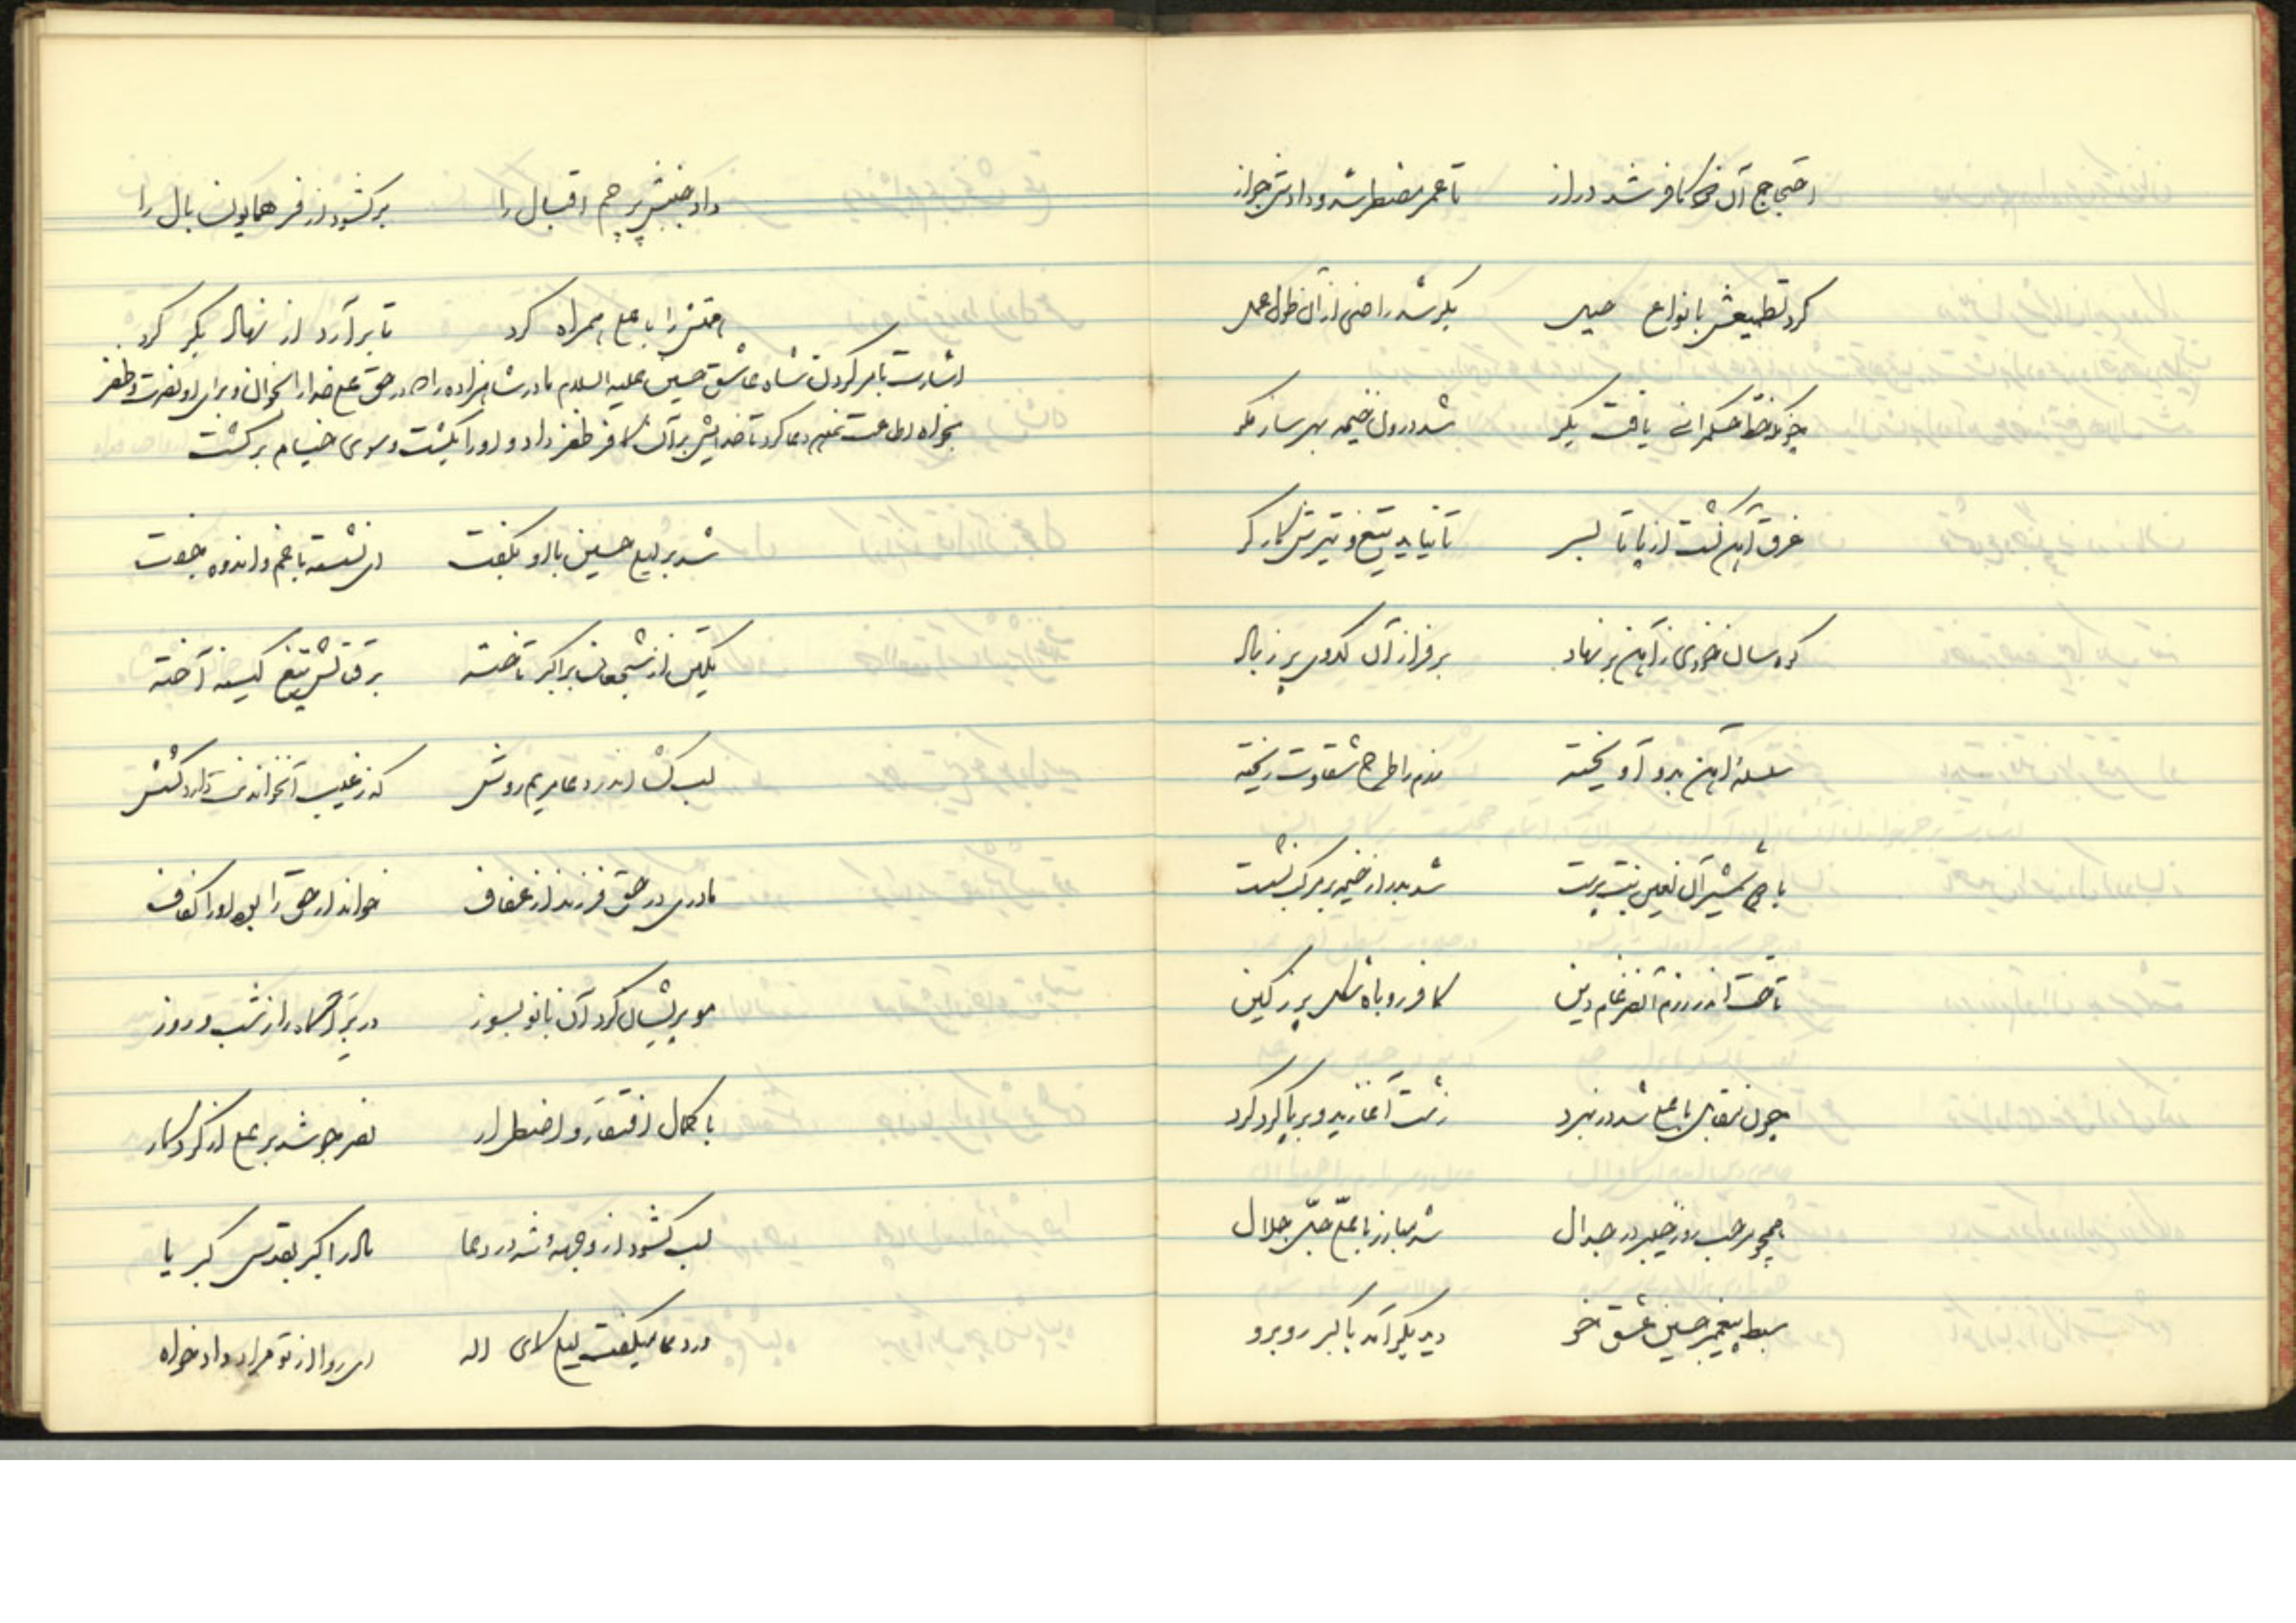 احتجاج آن کافر شد دراز تا عمر مضطر شد و دادش جواز
کرد تطمیعش بانواع حیل بکر شد راضی از آن طول عمل
چونکه خط حکمرانی یافت بکر شد درون خیمه بهر ساز مکر
غرق آهن گشت از پا تا بسر تا نیاید تیغ و تیرش کارگر
کوه سان خودی ز آهن بر نهاد بر فراز آن کدوی پر ز باد
سلسلهٔ آهن بدو آویخته مردم را طرح شقاوت ریخته
با چو شمشیر آن لعین بت پرست شد بدر از خیمه بر مرکب نشست
تاخت اندر رزم آن ضرغام دین کافر روباه شکل پر ز کین
چون مقابل با علی شد در نبرد زشت آغازید و برپا کرد گرد
همچو مرحب روز خیبر در جدال شد مبارز با علیّ جلال
سبط پیغمبر حسین عشق خو دید بکر آمد باکبر روبرو
داد جنبش پرچم اقبال را برگشود از فر همایون بال را
همتش را با علی همراه کرد تا برآرد از نهاد بکر گرد
اشارت بامر کردن شاه عاشق حسین علیه السلام مادر شاهزاده را که در حق علی خدا را بخوان و برای او نصرت و ظفر
بخواه دعا کرد تا خدایش بر آن کافر ظفر داد و او را بکشت و سوی خیام برگشت
شد بر لیلی حسین با او بگفت ای نشسته با غم و اندوه جفت
یکتن از شجعان بر اکبر تاخته برق آتش تیغ کینه آخته
لب گشا اندر دعا مریم روش که ز غیب
مادری در حق فرزند از عفاف خواند ار حق را بود او را کفاف
مو پریشان کرد آن بانو بسوز در بر دراز شب و روز
با کمال افتقار و اضطرار نصر جو شد بر علی از کردگار
لب گشود از وجهه شد در دعا مادر اکبر بقدس کبریا
در دعا میگفت لیلی کای اله ای روا از تو مراد دادخواه